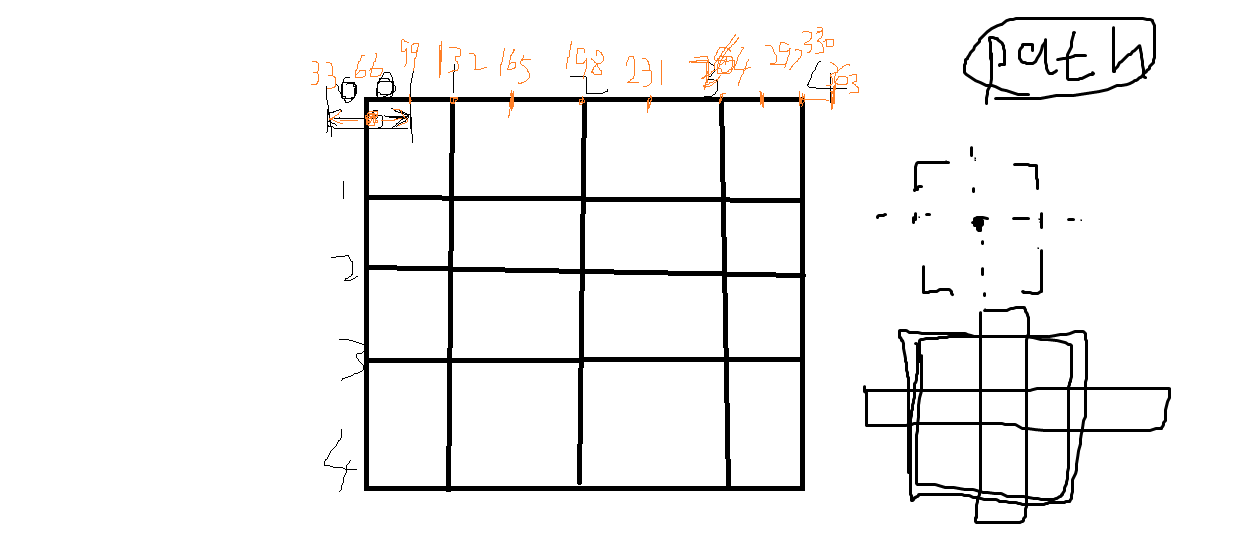 path
33 66 99 132 165 198 231 264 297 330 363
0 0 1 2 3 4
1
2
3
4